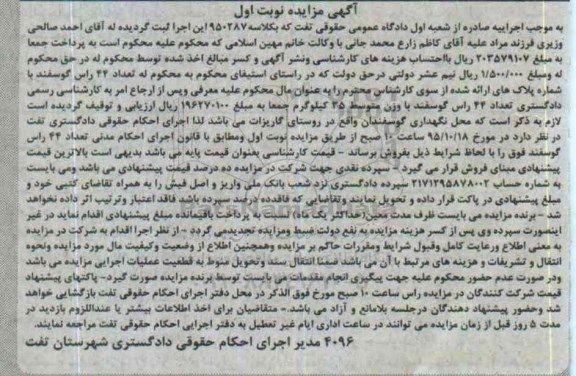 آگهی مزایده نوبت اول
به موجب اجراییه صادره از شعبه اول دادگاه عمومی حقوقی تفت که بکلاسه ۹۵۰۳۸۷ این اجرا ثبت گردیده له آقای احمد صالحی
وزیری فرزند مراد علیه آقای کاظم زارع محمد جانی با وکالت خانم مهین اسلامی که محکوم علیه محکوم است به پرداخت جمعا
به مبلغ ۲۰۳۵۷۹۱۰۷ ریال بااحتساب هزینه های کارشناسی ونشر آگهی و کسر مبالغ اخذ شده توسط محکوم له در حق محکوم
له ومبلغ ۱/۵۰۰/۰۰۰ ریال نیم عشر دولتی درحق دولت که در راستای استیفای محکوم به محکوم له تعداد ۴۴ راس گوسفند با
شماره پلاک های ارائه شده از سوی کارشناس محترم را به عنوان مال محکوم علیه معرفی وپس از ارجاع امر به کارشناسی رسمی
دادگستری تعداد ۴۴ راس گوسفند با وزن متوسط ۳۵ کیلوگرم جمعا به مبلغ ۱۹۶۲۷۰۱۰۰ ریال ارزیابی و توقیف گردیده است
لازم به ذکر است که محل نگهداری گوسفندان واقع در روستای گاریزات می باشد لذا اجرای احکام حقوقی دادگستری تفت
در نظر دارد در مورخ ۹۵/۱۰/۱۸ ساعت ۱۰ صبح از طریق مزایده نوبت اول ومطابق با قانون اجرای احکام مدنی تعداد ۴۴ راس
گوسفند فوق را با لحاظ شرایط ذیل بفروش برساند - قیمت کارشناسی بعنوان قیمت پایه می باشد بدیهی است بالاترین قیمت
پیشنهادی مبنای فروش قرار می گیرد - سپرده نقدی جهت شرکت در مزایده ده درصد قیمت پیشنهادی می باشد ومی بایست
به شماره حساب ۲۱۷۱۲۹۵۸۷۸۰۰۲ سپرده دادگستری نزد شعب بانک ملی واریز و اصل فیش را به همراه تقاضای کتبی خود و
مبلغ پیشنهادی در پاکت قرار داده و تحویل نمایند وتقاضایی که فاقدده درصد سپرده باشد فاقد اعتبار وترتیب اثر داده نخواهد
شد - برنده مزایده می بایست ظرف مدت معین(حداکثر یک ماه) نسبت به پرداخت باقیمانده مبلغ پیشنهادی اقدام نماید در غیر
اینصورت سپرده وی پس از کسر هزینه مزایده به نفع دولت ضبط ومزایده تجدیدمی گردد - از نظر اجرا اقدام به شرکت در مزایده
به معنی اطلاع ورعایت کامل وقبول شرایط ومقررات حاکم بر مزایده وهمچنین اطلاع از وضعیت وکیفیت مال مورد مزایده ونحوه
انتقال و تشریفات و هزینه های مرتبط با آن می باشد ضمنا انتقال سند وتحویل منوط به قطعیت عملیات اجرایی مزایده می باشد
ودر صورت عدم حضور محکوم علیه جهت پیگیری انجام مقدمات می بایست توسط برنده مزایده صورت گیرد- پاکتهای پیشنهاد
قیمت شرکت کنندگان در مزایده راس ساعت ۱۰ صبح مورخ فوق الذکر در محل دفتر اجرای احکام حقوقی تفت بازگشایی خواهد
شد وحضور پیشنهاد دهندگان درجلسه بلامانع و آزاد می باشد.- متقاضیان برای اخذ اطلاعات بیشتر یا عنداللزوم بازدید در
مدت ۵ روز قبل از زمان مزایده می توانند در ساعات اداری ایام غیر تعطیل به دفتر اجرایی احکام حقوقی تفت مراجعه نمایند.
۴۰۹۶ مدیر اجرای احکام حقوقی دادگستری شهرستان تفت